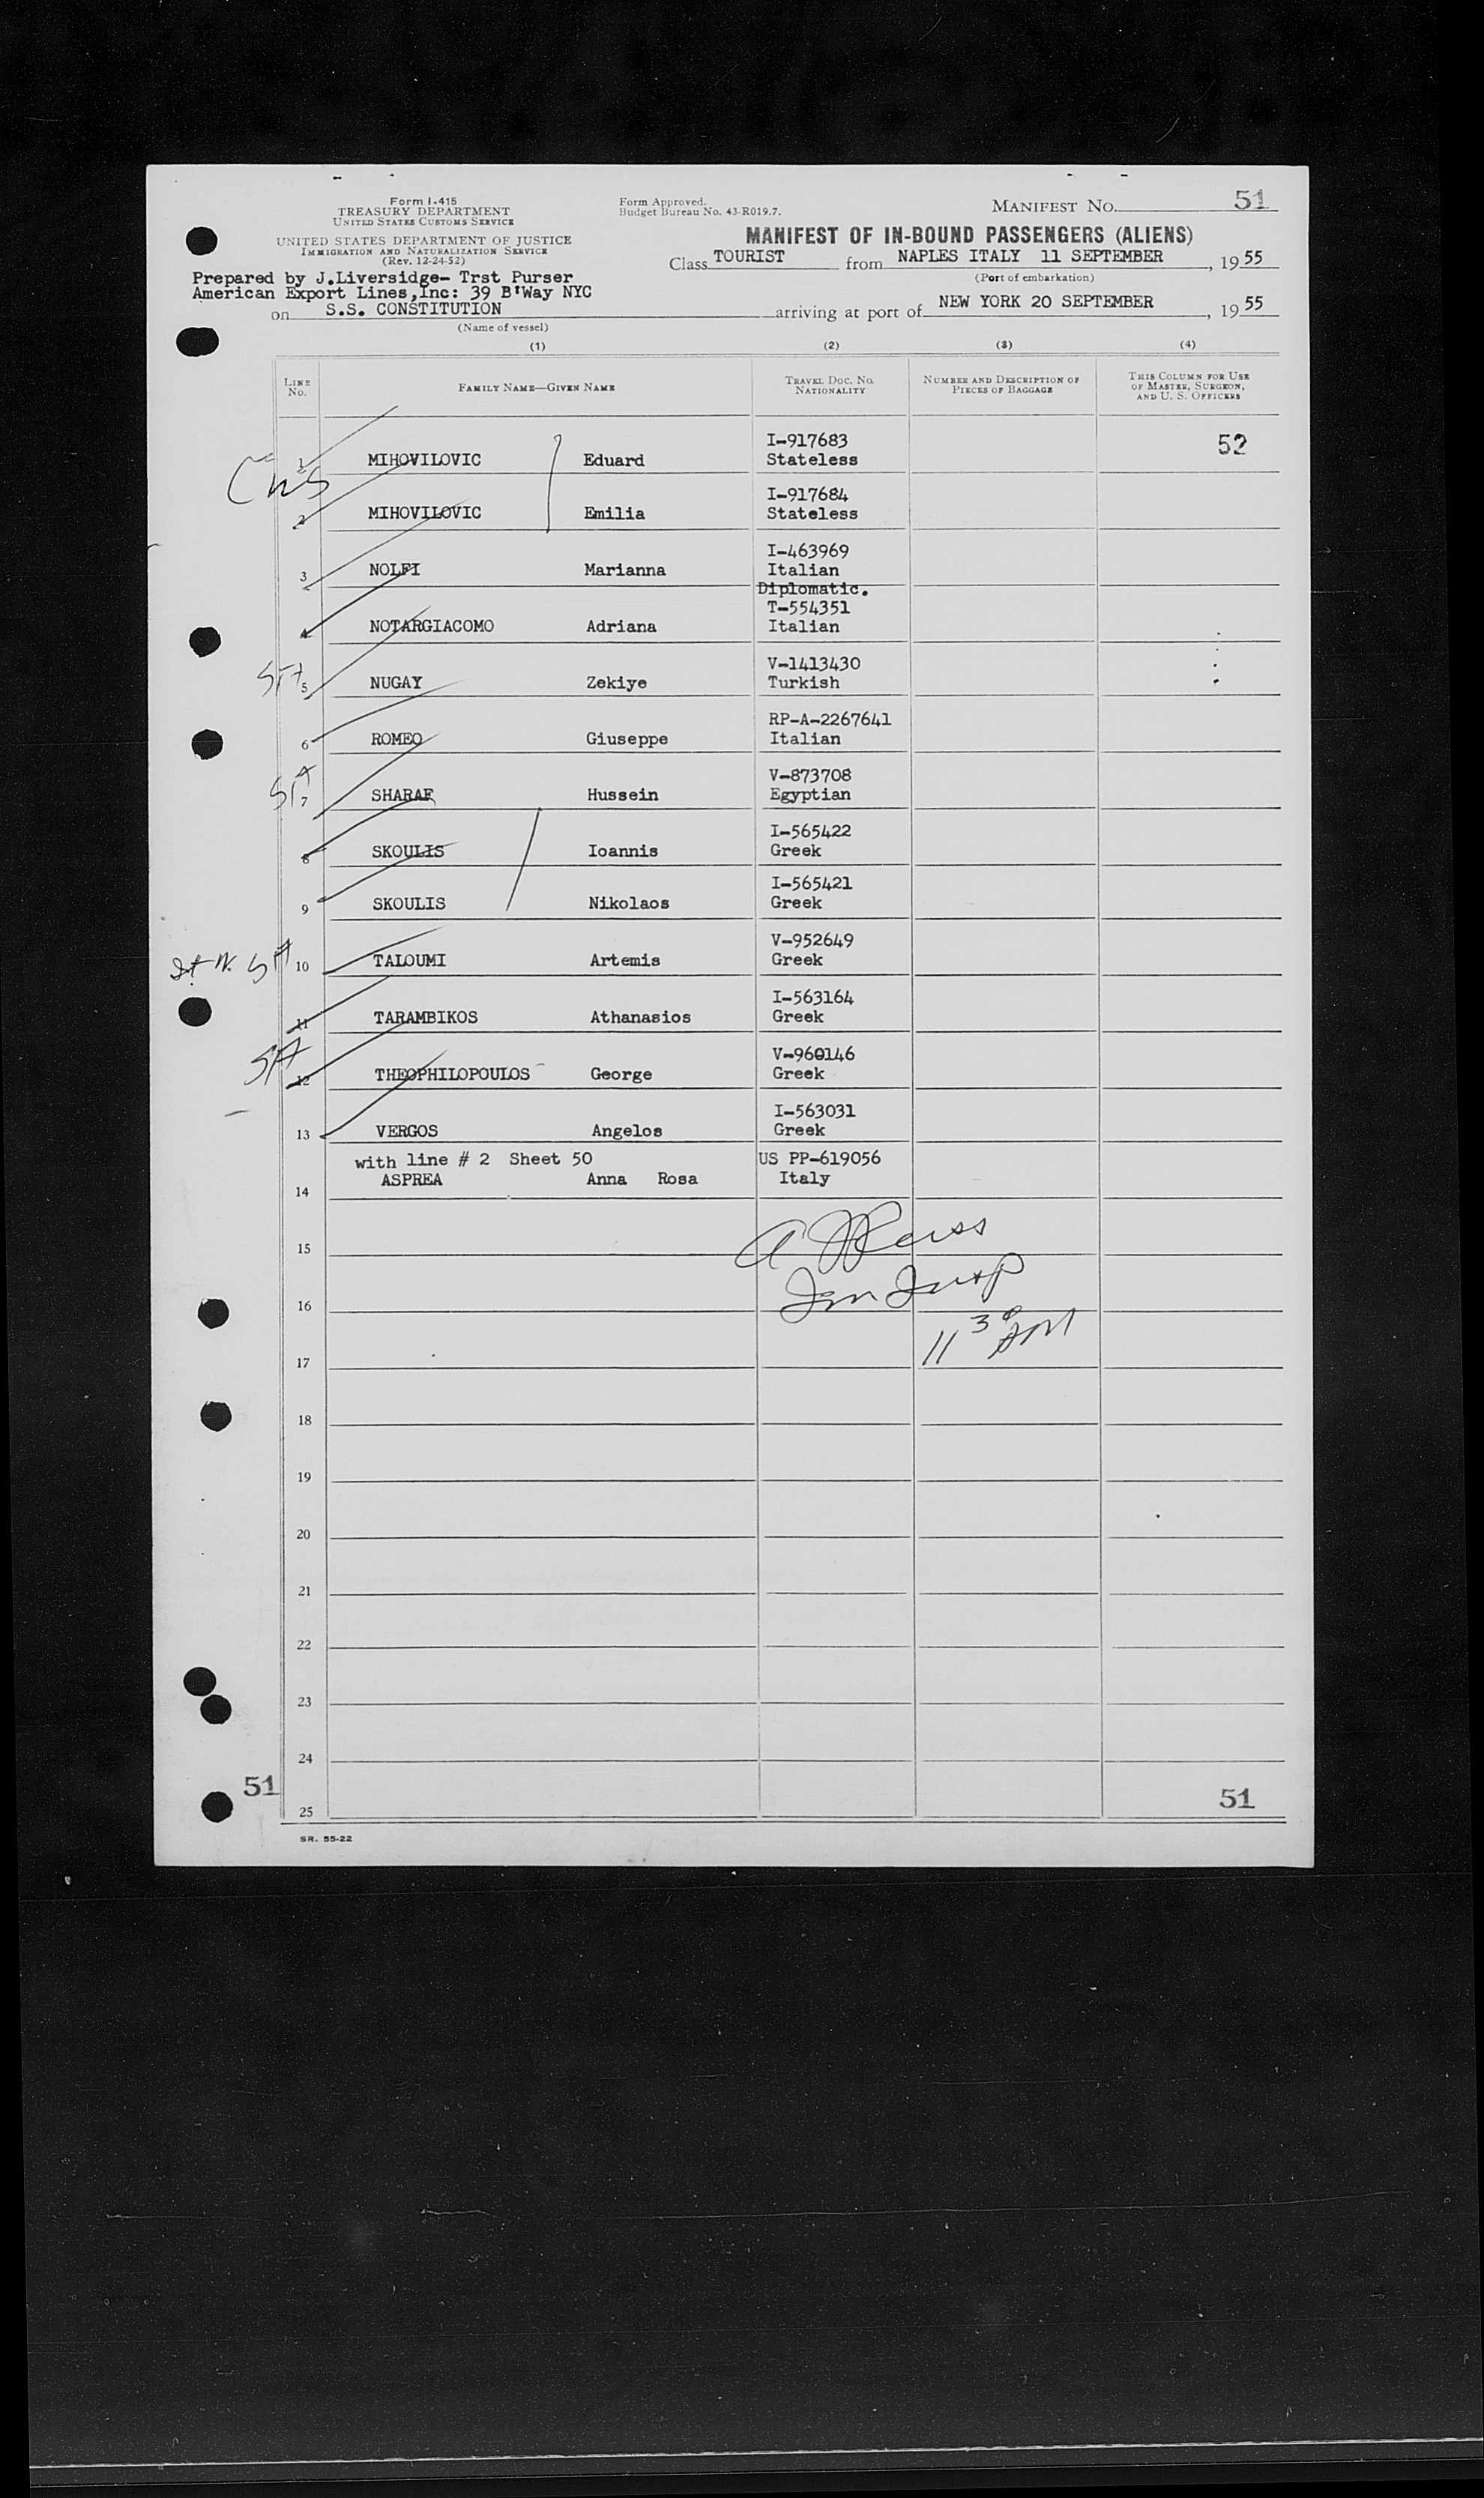 Form I-415
TREASURY DEPARTMENT
UNITED STATES CUSTOMS SERVICE
UNITED STATES DEPARTMENT OF JUSTICE
IMMIGRATION AND NATURALIZATION SERVICE
(Rev. 12-24-52)
Form Approved.
Budget Bureau No. 43-R019.7.
MANIFEST NO. 51
MANIFEST OF IN-BOUND PASSENGERS (ALIENS)
Class TOURIST from NAPLES ITALY 11 SEPTEMBER, 1955
(Port of embarkation)
Prepared by J.Liversidge- Trst Purser
American Export Lines,Inc: 39 B'Way NYC
on S.S. CONSTITUTION arriving at port of NEW YORK 20 SEPTEMBER, 1955
(Name of vessel)
(1) (2) (3) (4)
LINE NO. FAMILY NAME—GIVEN NAME TRAVEL DOC. NO. NATIONALITY NUMBER AND DESCRIPTION OF PIECES OF BAGGAGE THIS COLUMN FOR USE OF MASTER, SURGEON, AND U. S. OFFICERS
I-917683 52
1 MIHOVILOVIC Eduard Stateless
I-917684
2 MIHOVILOVIC Emilia Stateless
I-463969
3 NOLFI Marianna Italian
Diplomatic.
T-554351
4 NOTARGIACOMO Adriana Italian
V-1413430
5 NUGAY Zekiye Turkish
RP-A-2267641
6 ROMEO Giuseppe Italian
V-873708
7 SHARAF Hussein Egyptian
I-565422
8 SKOULIS Ioannis Greek
I-565421
9 SKOULIS Nikolaos Greek
V-952649
10 TALOUMI Artemis Greek
I-563164
11 TARAMBIKOS Athanasios Greek
V-960146
12 THEOPHILOPOULOS George Greek
I-563031
13 VERGOS Angelos Greek
with line # 2 Sheet 50 US PP-619056
14 ASPREA Anna Rosa Italy
15
16
11 30 AM
17
18
19
20
21
22
23
24
51 51
25
SR. 55-22